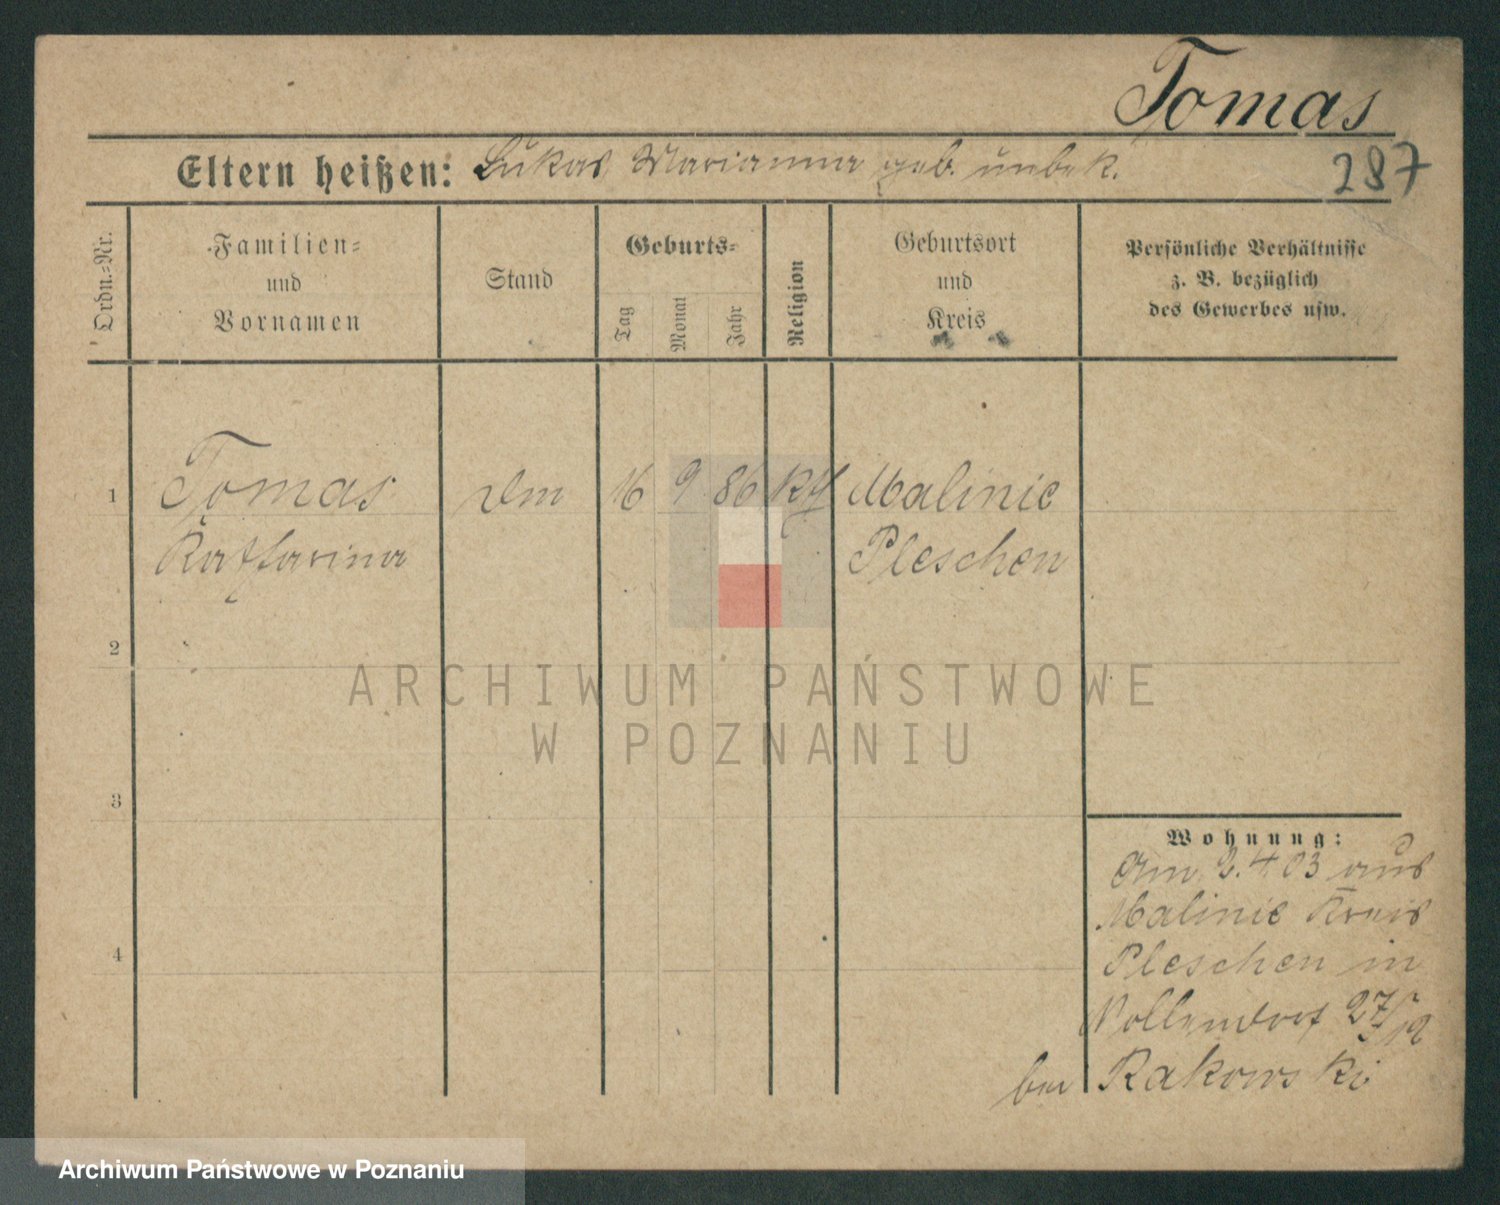 Tomas
287
Eltern heißen: Lukas Marianna geb. unbek.
Ordn.=Nr.
Familien=
und
Vornamen
Stand
Geburts=
Tag
Monat
Jahr
Religion
Geburtsort
und
Kreis
Persönliche Verhältnisse
z. B. bezüglich
des Gewerbes usw.
1
Tomas
Katharina
16 9 86
Malinie
Pleschen
2
3
4
Wohnung:
Am 2.4 03 aus
Malinie Kreis
Pleschen in
27/
bei Rakowski
ARCHIWUM PAŃSTWOWE
W POZNANIU
Archiwum Państwowe w Poznaniu